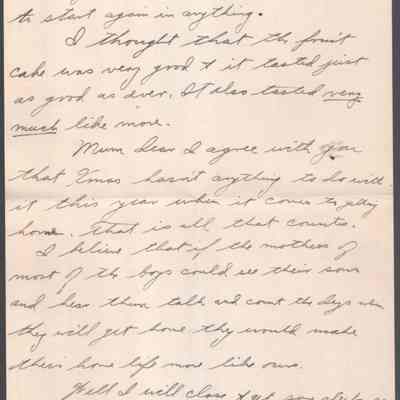 to start again in anything.
I thought that the fruit
cake was very good & it tasted just
as good as ever. It also tasted very
much like more.
Mum dear I agree with you
that Xmas hasn't anything to do with
it this year when it comes to
home. That is all that counts.
I believe that if the mothers of
most of the boys could see their sons
and hear them talk and count the days when
they will get home they would make
their home life more like ours.
Well I will close & get some sleep as